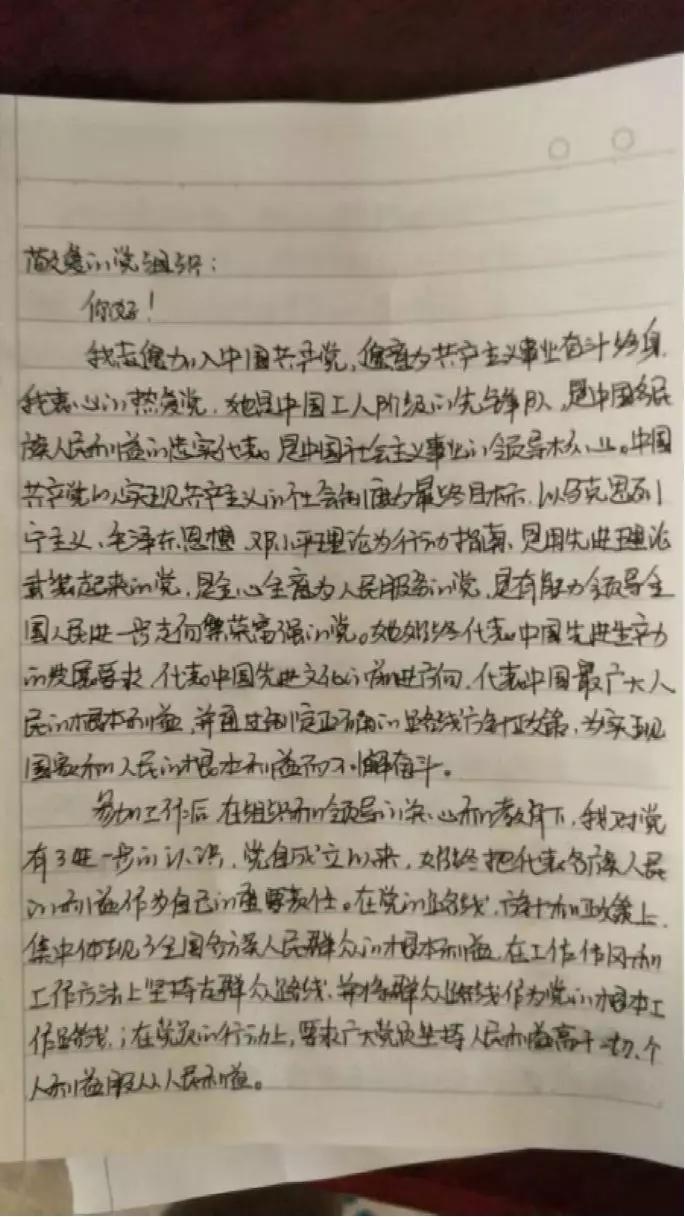 敬爱的党组织:
你好!
我志愿加入中国共产党,愿意为共产主义事业奋斗终身.
我衷心的热爱党,她是中国工人阶级的先锋队,是中国各民
族人民利益的忠实代表。是中国社会主义事业的领导核心。中国
共产党以实现共产主义的社会制度为最终目标,以马克思列
宁主义、毛泽东思想、邓小平理论为行动指南,是用先进理论
武装起来的党,是全心全意为人民服务的党,是有能力领导全
国人民进一步走向繁荣富强的党。她始终代表中国先进生产力
的发展要求,代表中国先进文化的前进方向,代表中国最广大人
民的根本利益,并通过制定正确的路线方针政策,为实现
国家和人民的根本利益而不懈奋斗。
参加工作后,在组织和领导的关心和教育下,我对党
有了进一步的认识,党自成立以来,始终把代表各族人民
的利益作为自己的重要责任。在党的路线、方针和政策上,
集中体现了全国各族人民群众的根本利益,在工作作风和
工作方法上坚持走群众路线,并将群众路线作为党的根本工
作路线;在党员的行动上,要求广大党员坚持人民利益高于一切,个
人利益服从人民利益。